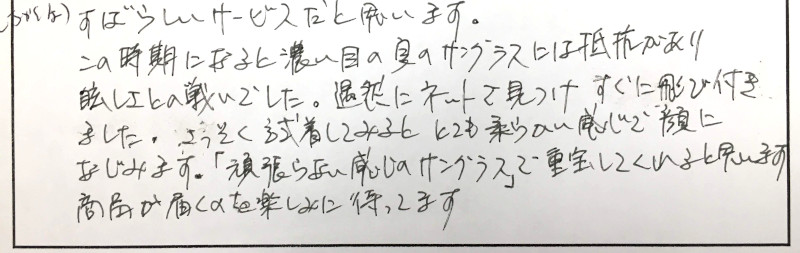 すばらしいサービスだと思います。
この時期になると濃い目の色のサングラスには抵抗があり
眩しさとの戦いでした。偶然にネットで見つけ すぐに飛び付き
ました。さっそく試着してみると とても柔らかい感じで顔に
なじみます。「頑張らない感じのサングラス」で重宝してくれると思います
商品が届くのを楽しみに待ってます